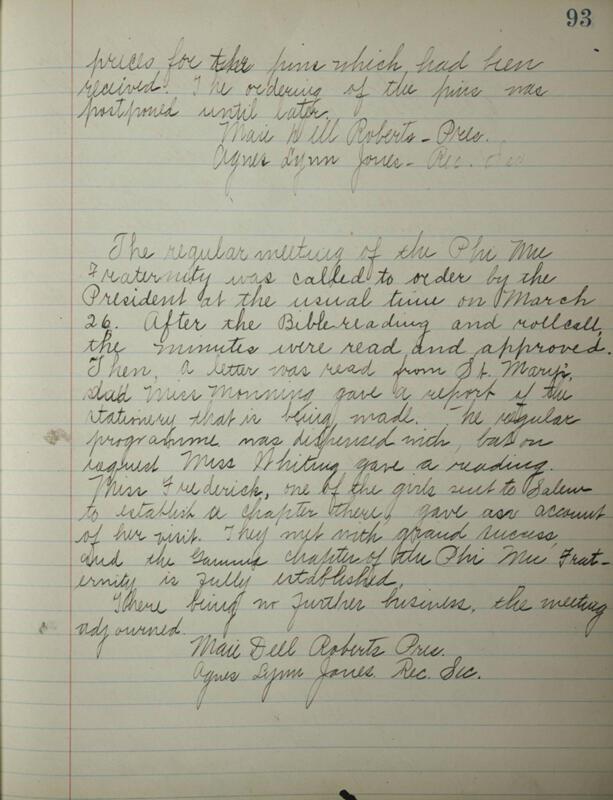 93
prices for the pins which had been
received. The ordering of the pins was
postponed until later.
Maie Dell Roberts - Pres.
Agnes Lynn Jones - Rec. Sec
The regular meeting of the Phi Mu
Fraternity was called to order by the
President at the usual time on March
26. After the Bible reading and rollcall,
the minutes were read and approved.
Then, a letter was read from St. Mary's,
Miss Monning gave a report of the
stationery that is being made. The regular
programme was dispensed with, but on
request Miss Whiting gave a reading.
Miss Frederick, one of the girls sent to Salem
to establish a chapter there, gave an account
of her visit. They met with grand success,
and the Gamma chapter of the Phi Mu Frat-
ernity is fully established.
There being no further business, the meeting
adjourned.
Maie Dell Roberts Pres.
Agnes Lynn Jones. Rec. Sec.